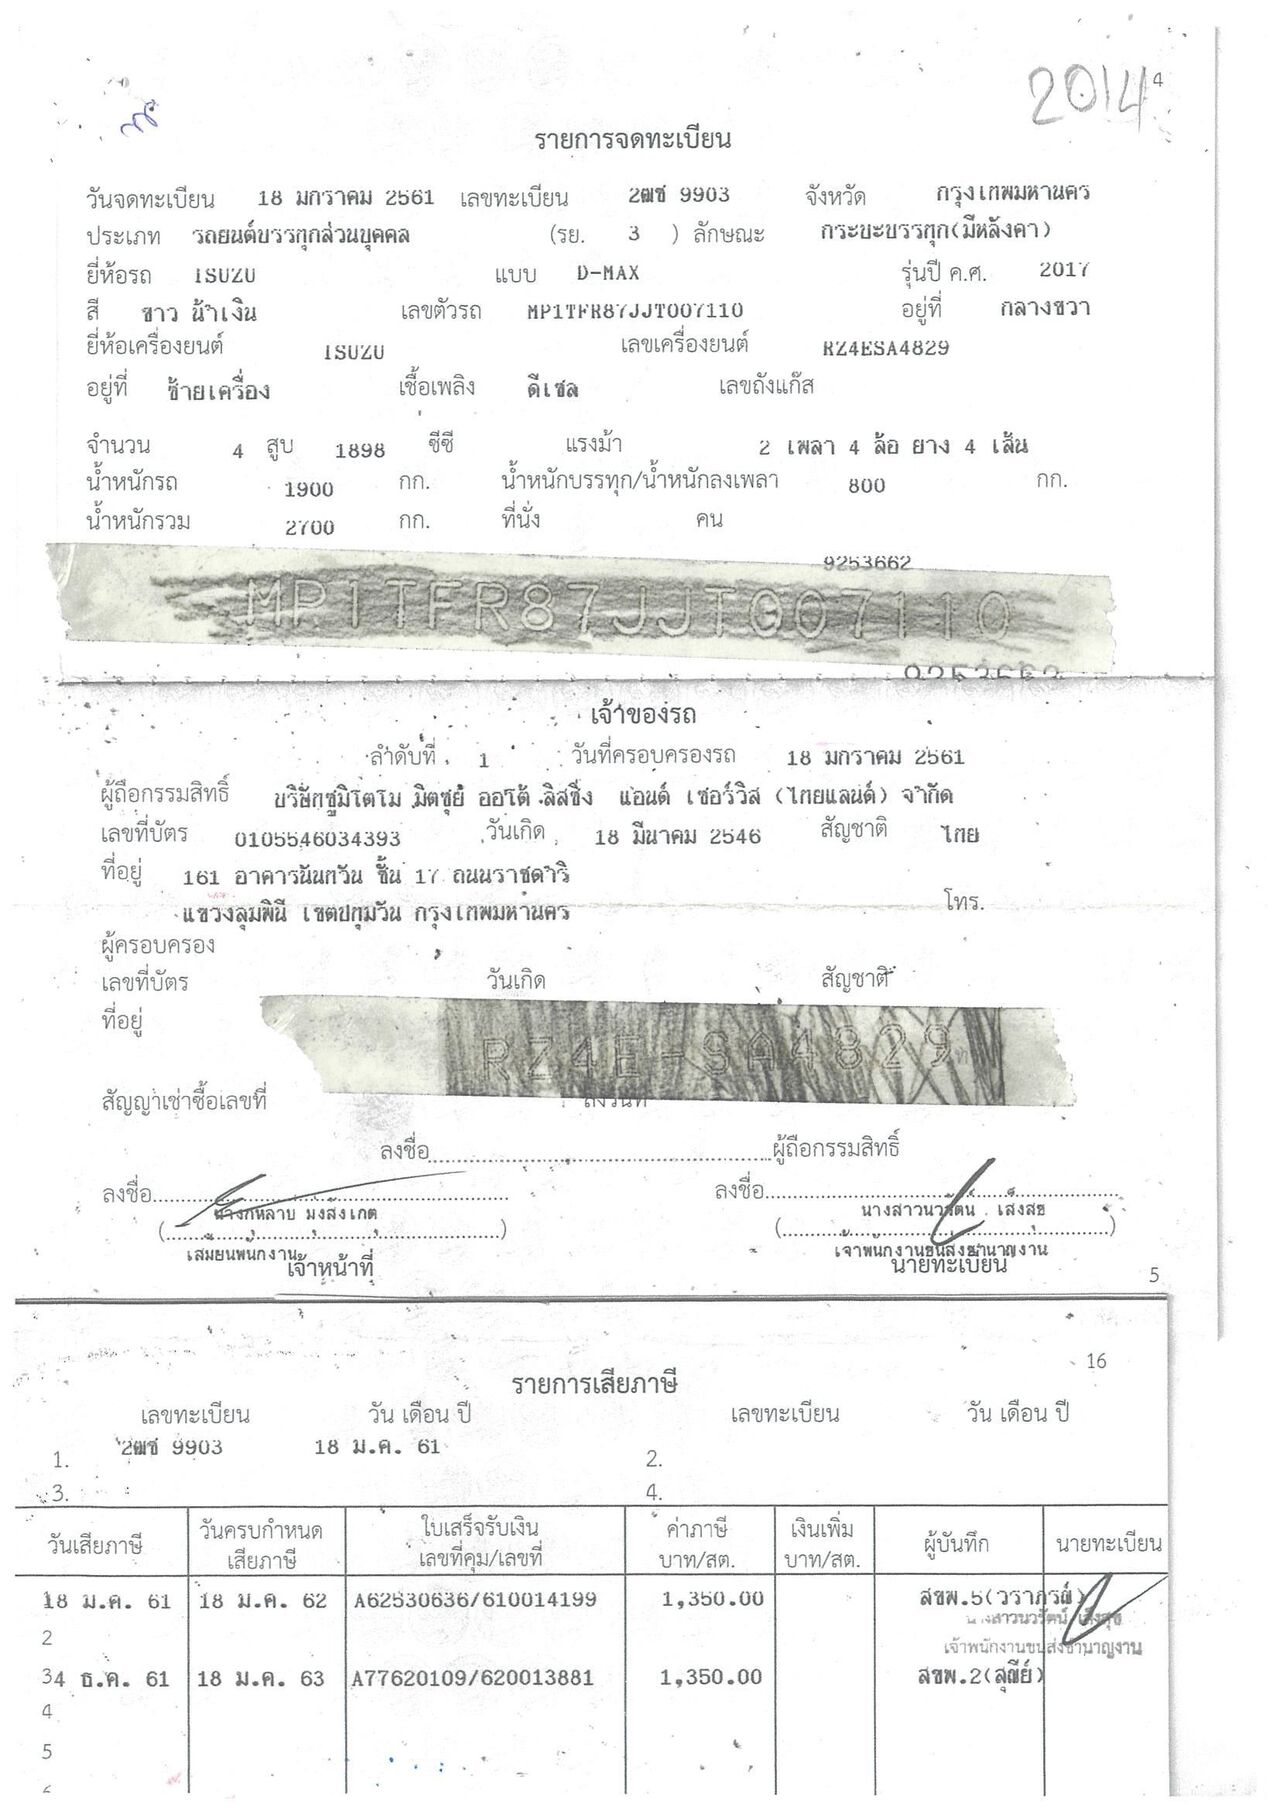 2014
4
รายการจดทะเบียน
วันจดทะเบียน 18 มกราคม 2561 เลขทะเบียน 2ฒซ 9903 จังหวัด กรุงเทพมหานคร
ประเภท รถยนต์บรรทุกส่วนบุคคล (รย. 3 ) ลักษณะ กระบะบรรทุก(มีหลังคา)
ยี่ห้อรถ ISUZU แบบ D-MAX รุ่นปี ค.ศ. 2017
สี ขาว น้ำเงิน เลขตัวรถ MP1TFR87JJT007110 อยู่ที่ กลางขวา
ยี่ห้อเครื่องยนต์ ISUZU เลขเครื่องยนต์ RZ4ESA4829
อยู่ที่ ซ้ายเครื่อง เชื้อเพลิง ดีเซล เลขถังแก๊ส
จำนวน 4 สูบ 1898 ซีซี แรงม้า 2 เพลา 4 ล้อ ยาง 4 เส้น
น้ำหนักรถ 1900 กก. น้ำหนักบรรทุก/น้ำหนักลงเพลา 800 กก.
น้ำหนักรวม 2700 กก. ที่นั่ง คน
9253662
MP1TFR87JJT007110
เจ้าของรถ
ลำดับที่ 1 วันที่ครอบครองรถ 18 มกราคม 2561
ผู้ถือกรรมสิทธิ์ บริษัทซูมิโตโม มิตซุย ออโต้ ลิสซิ่ง แอนด์ เซอร์วิส (ไทยแลนด์) จำกัด
เลขที่บัตร 0105546034393 วันเกิด 18 มีนาคม 2546 สัญชาติ ไทย
ที่อยู่ 161 อาคารนันทวัน ชั้น 17 ถนนราชดำริ
แขวงลุมพินี เขตปทุมวัน กรุงเทพมหานคร โทร.
ผู้ครอบครอง
เลขที่บัตร วันเกิด สัญชาติ
ที่อยู่
RZ4E-SA4829
สัญญาเช่าซื้อเลขที่ ลงวันที่
ลงชื่อ ผู้ถือกรรมสิทธิ์
ลงชื่อ ลงชื่อ
นางกุหลาบ มุ่งสังเกต นางสาวนวรัตน์ เส็งสุข
เสมียนพนักงาน เจ้าพนักงานขนส่งชำนาญงาน
เจ้าหน้าที่ นายทะเบียน
5
16
รายการเสียภาษี
เลขทะเบียน วัน เดือน ปี เลขทะเบียน วัน เดือน ปี
1. 2ฒซ 9903 18 ม.ค. 61 2.
3. 4.
วันเสียภาษี วันครบกำหนด เสียภาษี ใบเสร็จรับเงิน เลขที่คุม/เลขที่ ค่าภาษี บาท/สต. เงินเพิ่ม บาท/สต. ผู้บันทึก นายทะเบียน
18 ม.ค. 61 18 ม.ค. 62 A62530636/610014199 1,350.00 สขพ.5(วราภรณ์)
นางสาวนวรัตน์ เส็งสุข
2 เจ้าพนักงานขนส่งชำนาญงาน
34 ธ.ค. 61 18 ม.ค. 63 A77620109/620013881 1,350.00 สขพ.2(สุณีย์)
4
5